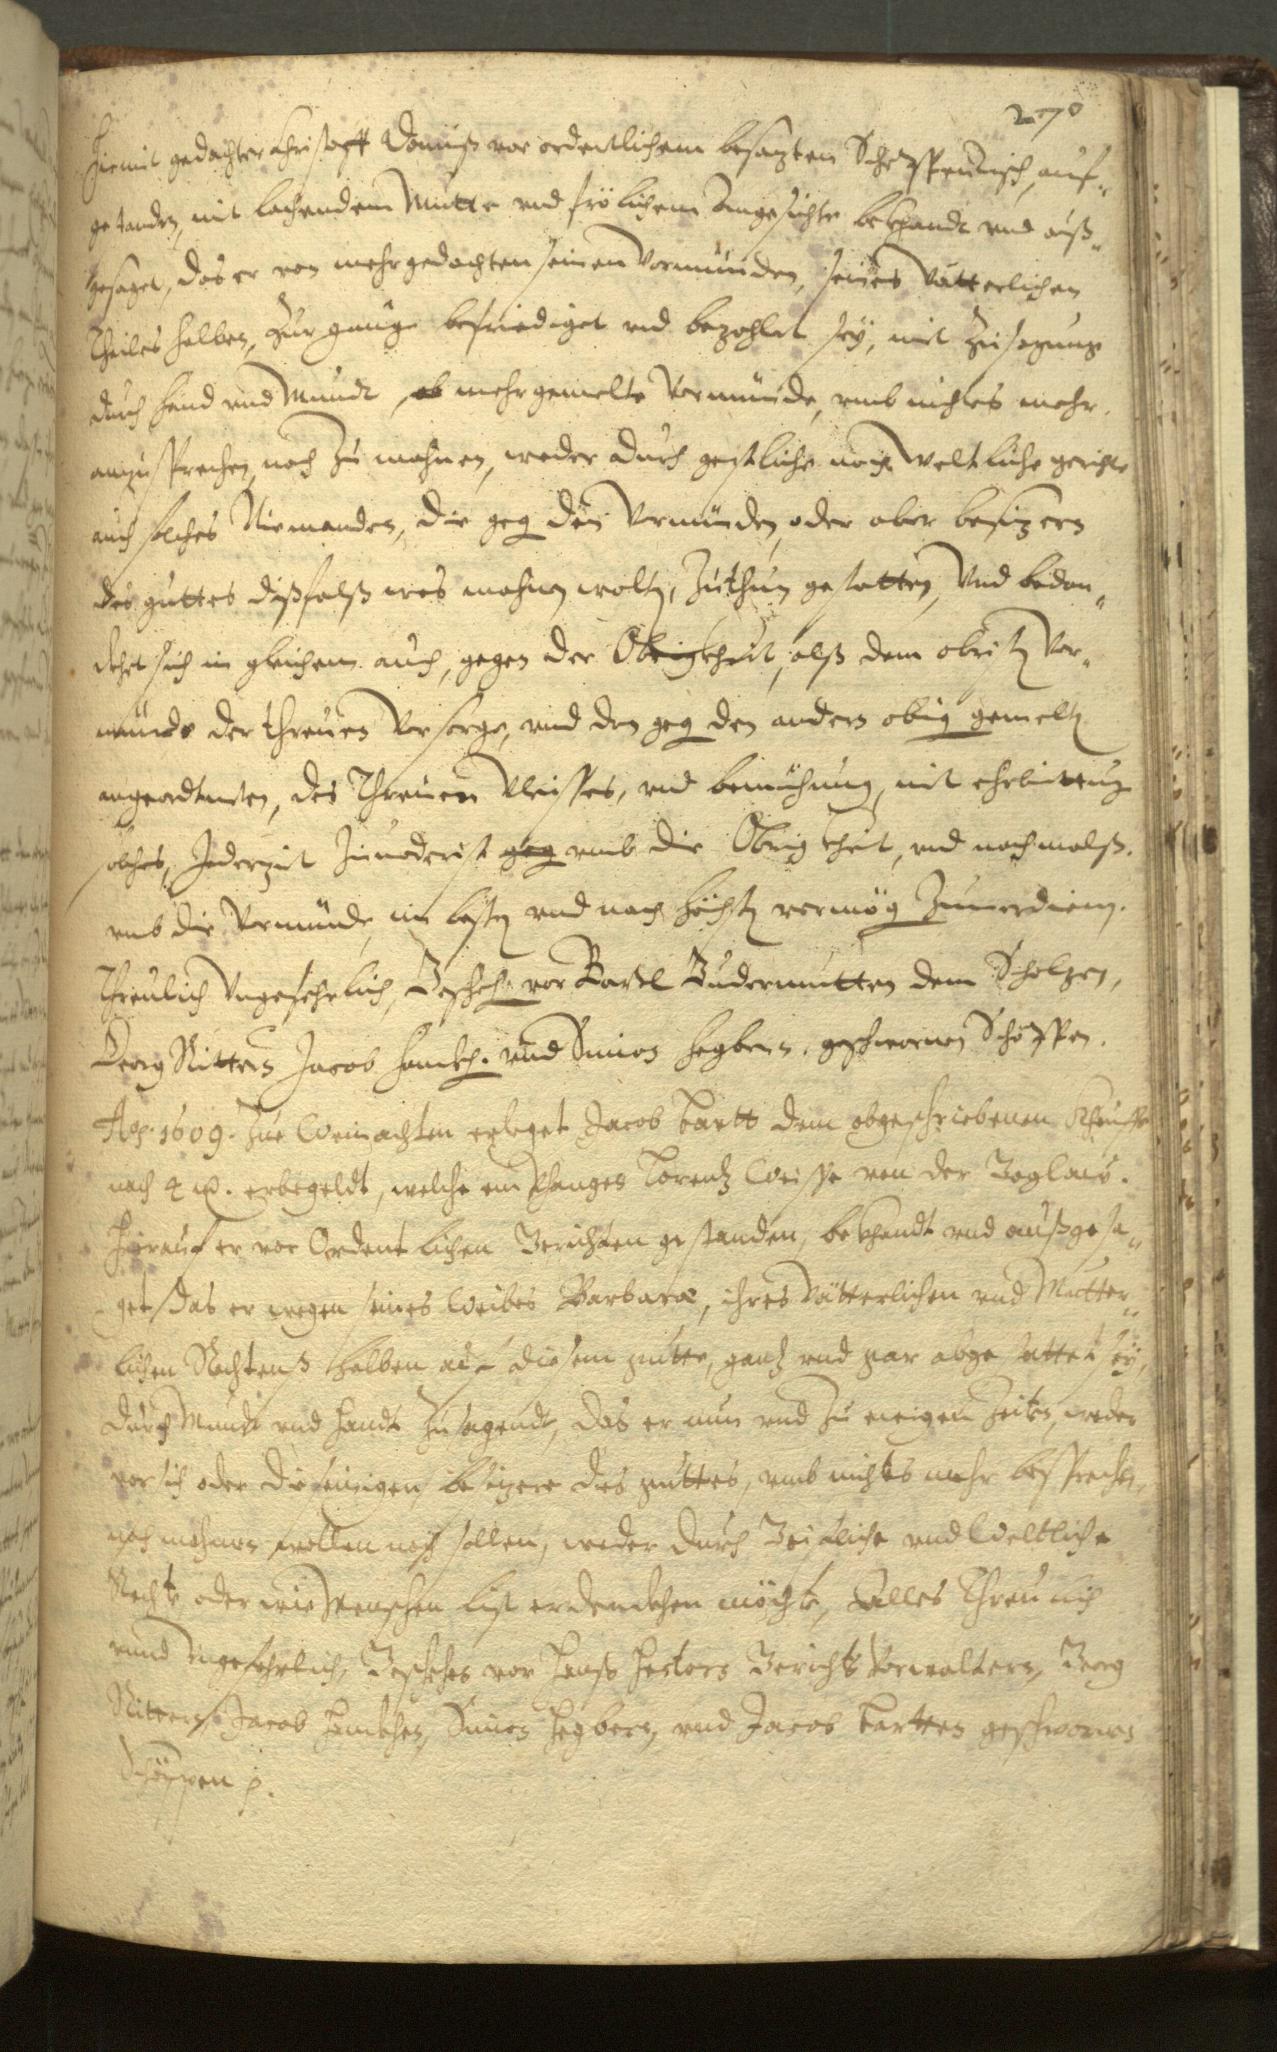 270
Hiemit gedachter Christoff Donniß vor ordentlichem besazten Schöppentisch, auf„
gestanden, mit lachendem Mutte vnd frölichem Angesichte bekhandt vnd auß„
gesaget, das er von mehrgedachten seinen Vormünden, seines Vätterlichen
Theiles halben, Zur gnuge befriediget vnd bezahlet seÿ, mit Zusagung
durch Hand vnd Mundt, mehrgemelte Vormünde, vmb nichtes mehr
anzusprechen, noch Zu mahnen, weder durch geistliche noch weltliche gerichte
auch solches Niemanden, die geg den Vormünden, oder aber besizern
des guttes dißfalß was mahnen wolte, Zuthun gestatten, Vnd bedan„
cket sich in gleichem auch, gegen der Obrigkheit, alß dem obristen Vor„
munde der threuen Vorsorge, vnd den geg den andern obig gemelten
angeordtneten, des Threuen Vleisses, vnd bemühung, mit ehrbittung
solches, Jederzeit Zuuoderist geg vmb die Obrigkheit, vnd nachmalß
vmb die Vormünde im besten vnd nach höchsten vermög Zuuerdienen.
Threulich Vngefehrlich, Geschehen vor Bartl Gudermutten dem Scholzen,
Georg Ritters Jacob Hankhen vnd Simon Hegbern, geschwornen Schöppen.
Ao. 1609. Zue Weinachten erleget Jacob Tartt dem obgeschriebenen Khauffe
nach 4 m. erbegeldt, welche empfangen Lorentz Weisse von der Boglau.
Hierauf er vor Ordentlichen Gerichten gestanden, bekhandt vnd außgesa„
get, das er wegen seines Weibes Barbarae, ihres Vätterlichen vnd Mutter„
lichen Rechtens halben auf diesem gutte, ganz vnd gar abgestattet seÿ,
Durch Mundt vnd Handt Zusagendt, das er nun vnd Zu ewigen Zeiten, weder
vor sich oder die seinigen, besizere des guttes, vmb nichtes mehr besprechen,
noch mahnen wollen noch sollen, weder durch Geistliche vnd Weltliche
Rechte oder wie Menschen list erdenckhen möchte, Alles Threulich
vnnd Vngefehrlich, Geschehen vor Hanß Hertors Gerichts Vorwaltern, Georg
Rittern, Jacob Hankhen, Simon Hegbern, vnd Jacob Tartten geschwornen
Schöppen p.